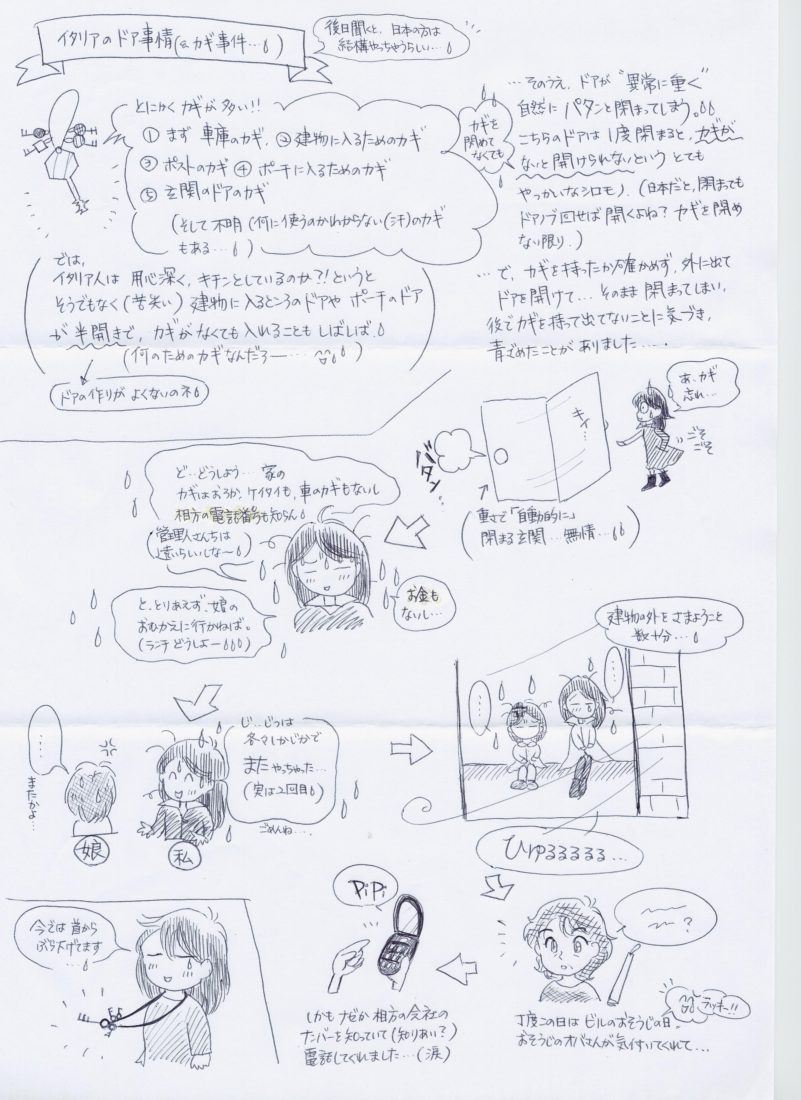 イタリアのドア事情(&カギ事件…)
後日聞くと、日本の方は
結構やっちゃうらしい…
とにかくカギが多い!!
① まず 車庫のカギ、②建物に入るためのカギ
③ ポストのカギ ④ ポーチに入るためのカギ
⑤ 玄関のドアのカギ
(そして不明(何に使うのかわからない(汗)のカギ
もある…)
カギを
閉めて
なくても
…そのうえ、ドアが“異常に重く”
自然に パタンと閉まってしまう。
こちらのドアは1度閉まると、カギが
ないと開けられないという とても
やっかいなシロモノ。(日本だと、閉まっても
ドアノブ回せば開くよね? カギを閉め
ない限り.)
では、
イタリア人は 用心深く、キチンとしているのか?!というと
そうでもなく(苦笑い) 建物に入るところのドアや ポーチのドア
が半開きで、カギがなくても入れることもしばしば。
(何のためのカギなんだろー……)
ドアの作りが よくないのネ
…で、カギを持ったか確かめず、外に出て
ドアを開けて…そのまま閉まってしまい、
後でカギを持って出てないことに気づき、
青ざめたことがありました……
あ、カギ
忘れ…
ごそ
ごそ
キィ…
バタン
重さで「自動的に」
閉まる玄関…無情…
ど…どうしよう… 家の
カギはおろか、ケイタイも、車のカギもないし
相方の電話番号も知らん
管理人さんちは
遠いらしいしな〜
お金も
ないし…
と、とりあえず、娘の
おむかえに行かねば。
(ランチどうしよー)
じ…じつは
各々しかじかで
またやっちゃった…
(実は2回目)
ごめんね....
……
またかよ…
娘
私
建物の外をさまようこと
数十分…
……
……
ひゅるるるるる…
?
ラッキー!!
丁度この日は ビルのおそうじの日。
おそうじのオバさんが気付いてくれて…
PiPi
しかも ナゼか 相方の会社の
ナンバーを知っていて(知りあい?)
電話してくれました…(涙)
今では 首から
ぶら下げてます
…